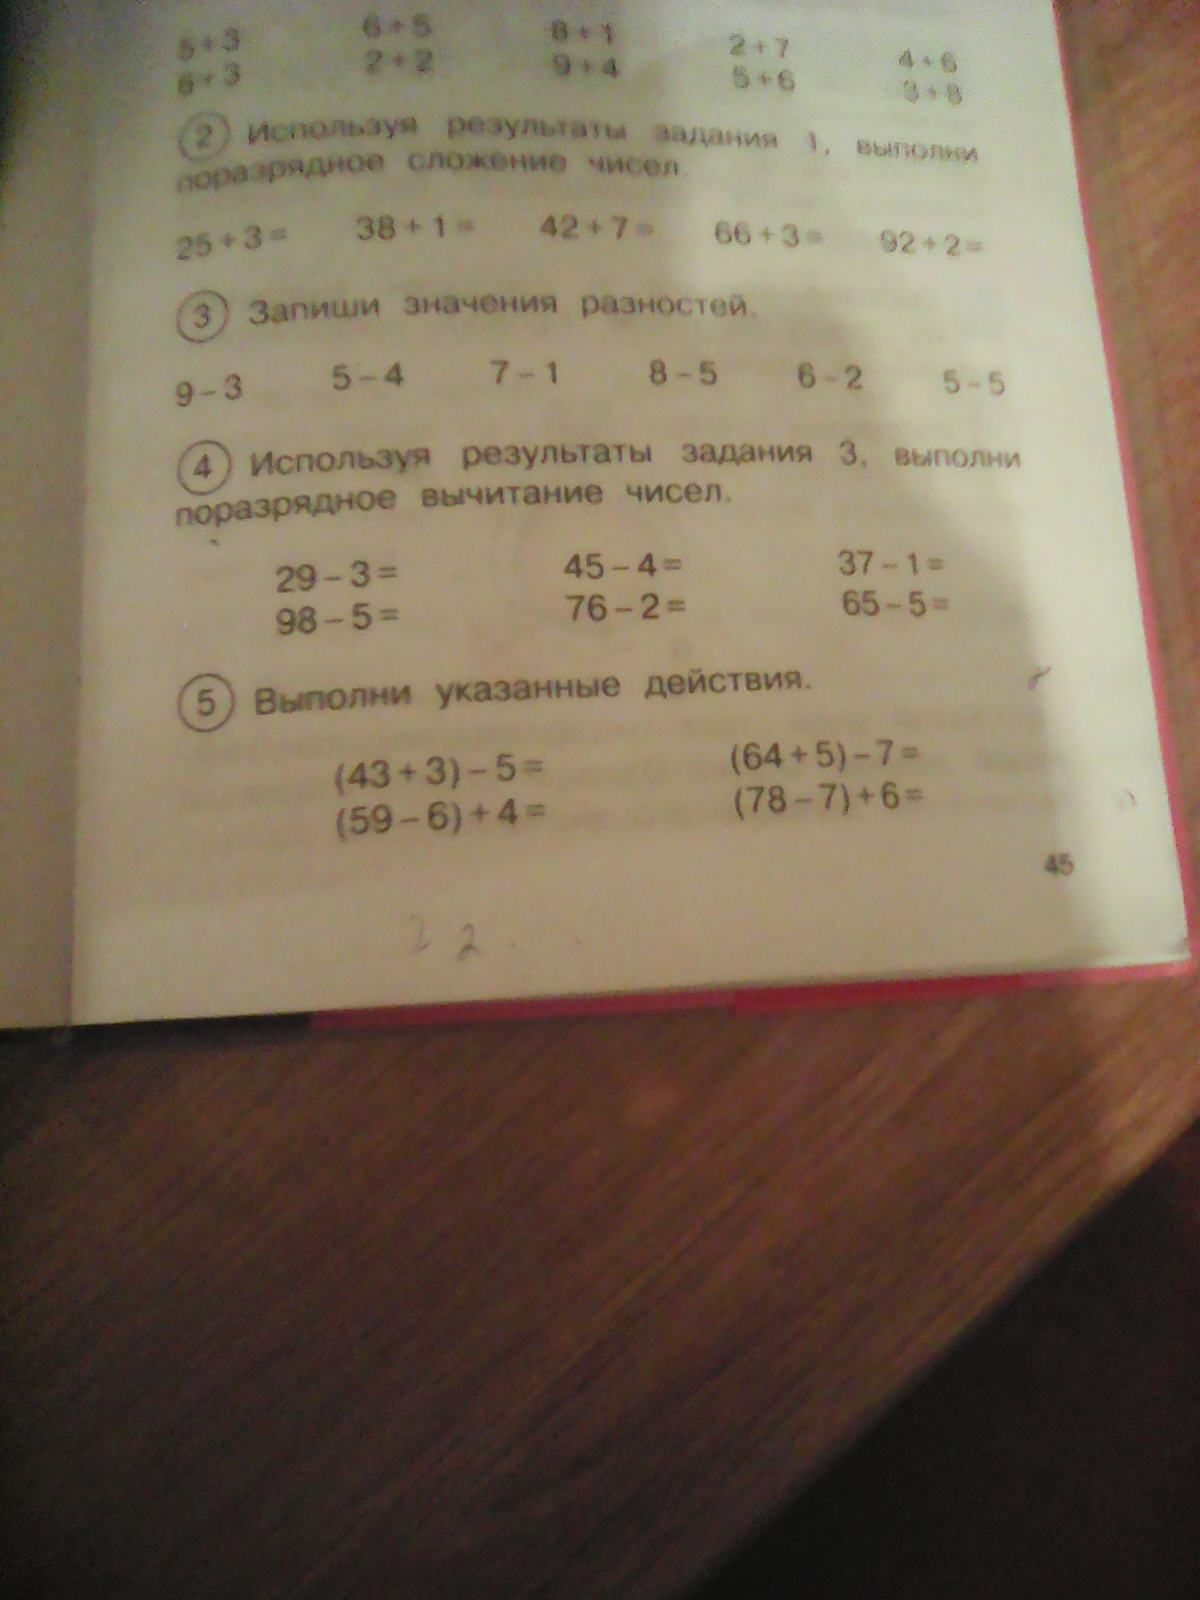 5+3 6+5 8+1 2+7 4+6
6+3 2+2 9+4 5+6 3+8
2 Используя результаты задания 1, выполни
поразрядное сложение чисел.
25+3= 38+1= 42+7= 66+3= 92+2=
3 Запиши значения разностей.
9-3 5-4 7-1 8-5 6-2 5-5
4 Используя результаты задания 3, выполни
поразрядное вычитание чисел.
29-3= 45-4= 37-1=
98-5= 76-2= 65-5=
5 Выполни указанные действия.
(43+3)-5= (64+5)-7=
(59-6)+4= (78-7)+6=
45
2 2